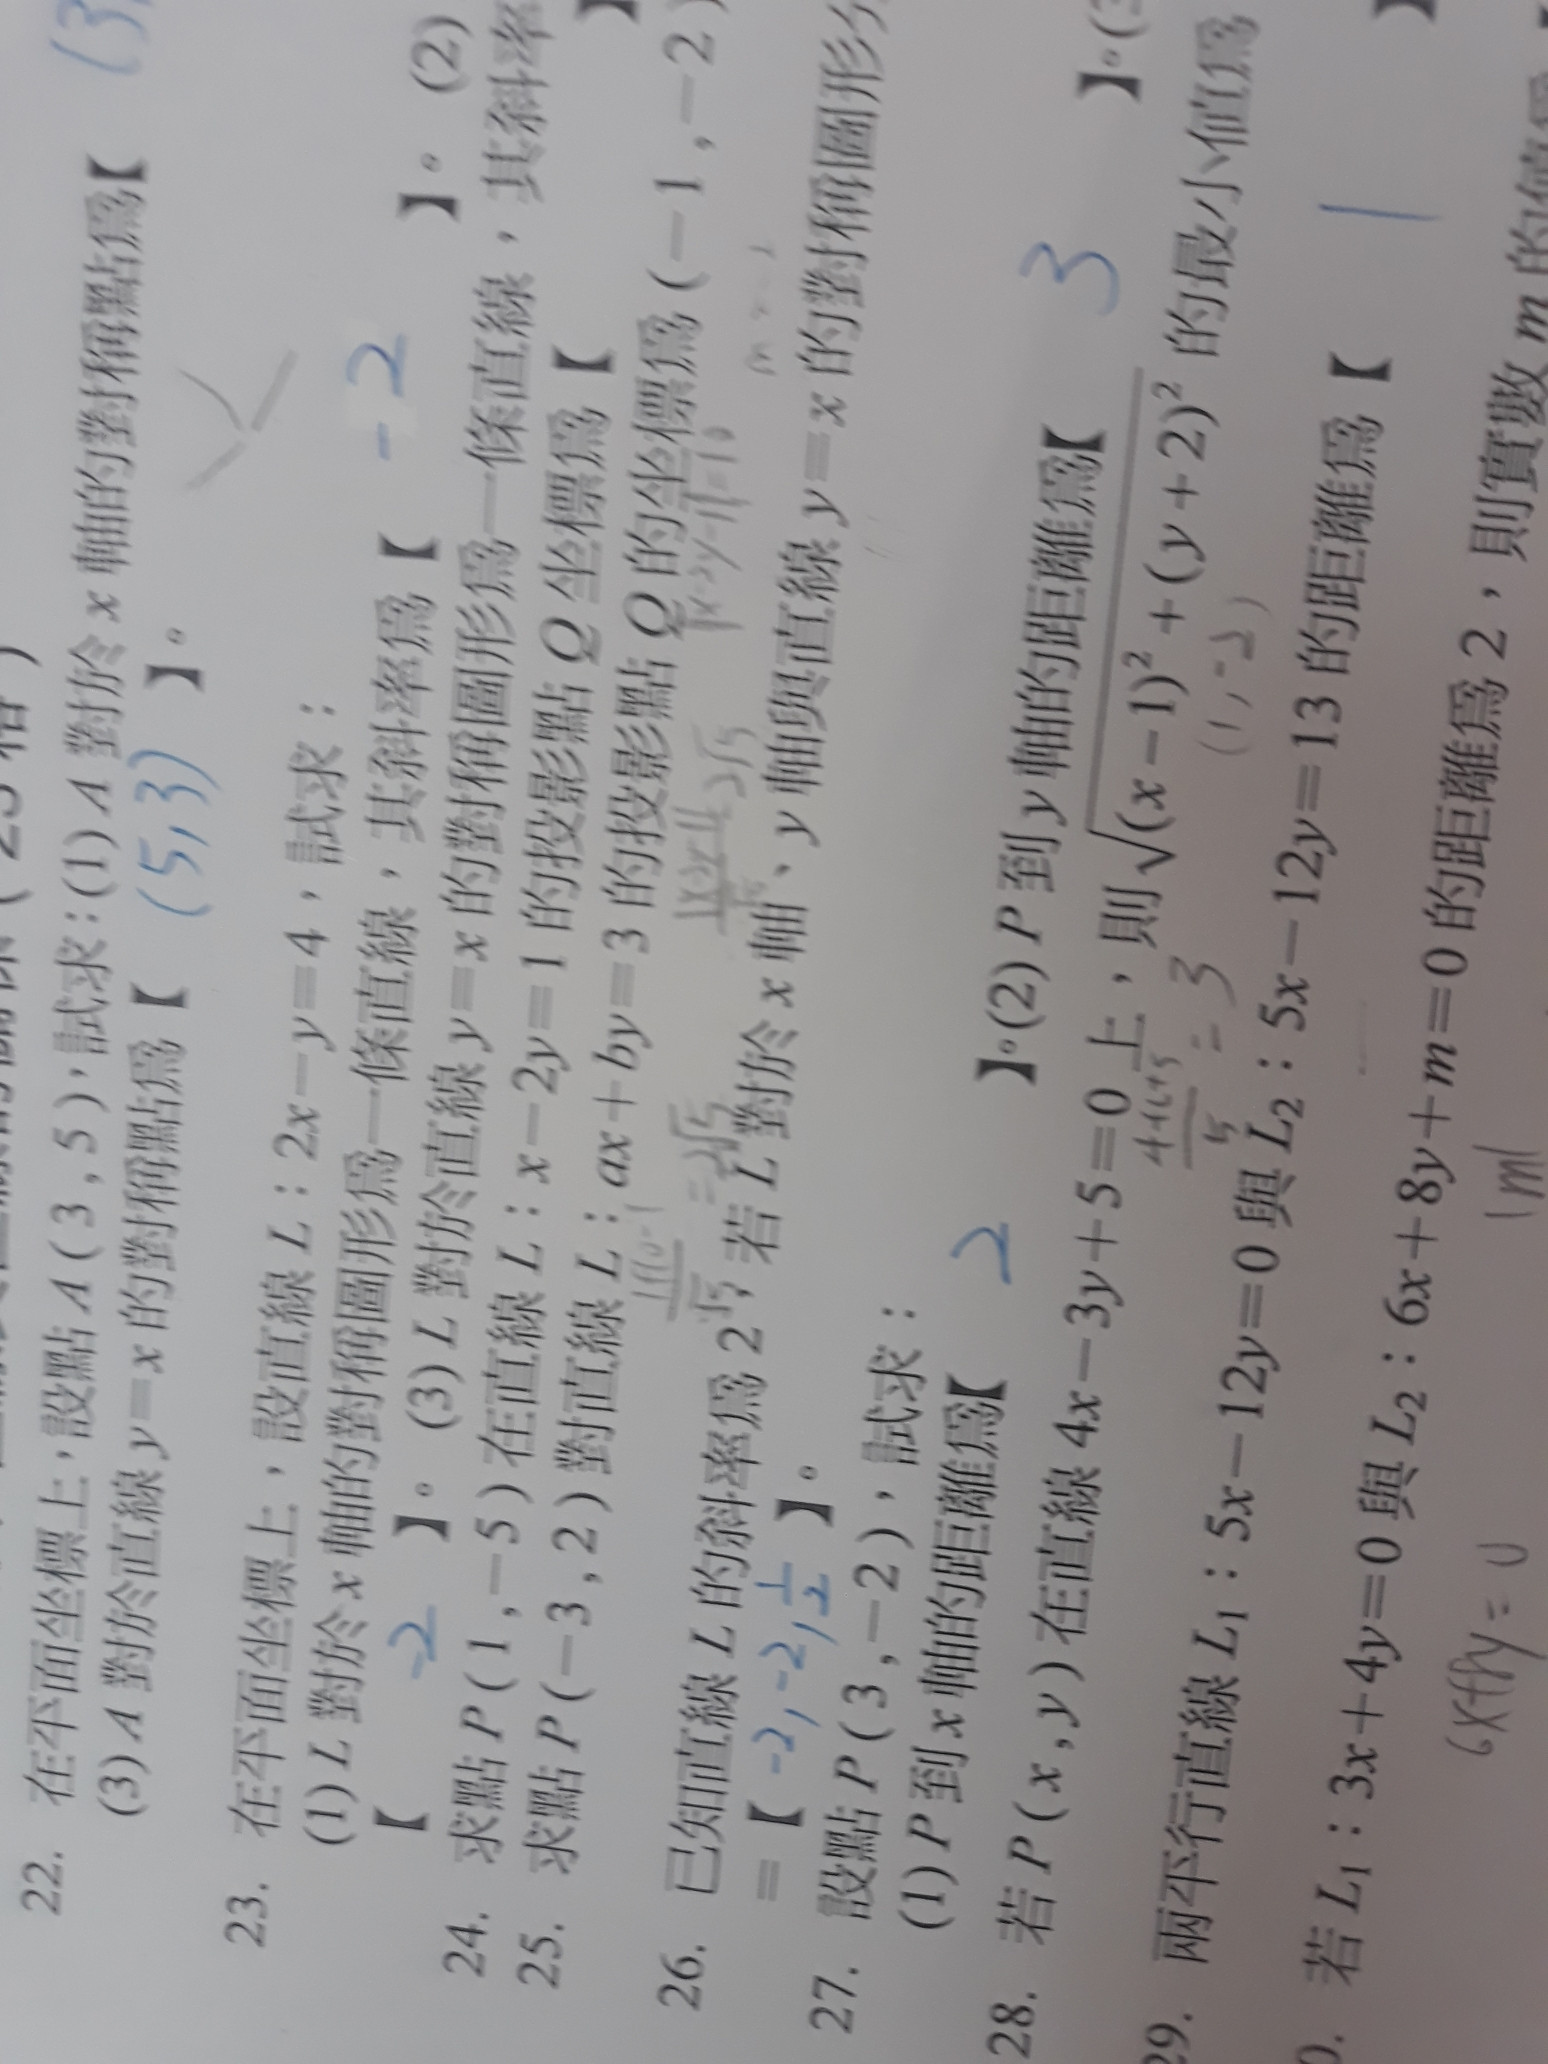 22. 在平面坐標上，設點 A ( 3 , 5 )，試求：(1) A 對於 x 軸的對稱點為【 (3,
(3) A 對於直線 y＝x 的對稱點為【 (5,3) 】。
23. 在平面坐標上，設直線 L：2x－y＝4，試求：
(1) L 對於 x 軸的對稱圖形為一條直線，其斜率為【 -2 】。 (2)
【 -2 】。 (3) L 對於直線 y＝x 的對稱圖形為一條直線，其斜率
24. 求點 P ( 1 , －5 ) 在直線 L：x－2y＝1 的投影點 Q 坐標為【 】
25. 求點 P ( －3 , 2 ) 對直線 L：ax＋by＝3 的投影點 Q 的坐標為 ( －1 , －2 )
26. 已知直線 L 的斜率為 2，若 L 對於 x 軸、y 軸與直線 y＝x 的對稱圖形
＝【 -2, -2, 1/2 】。
27. 設點 P ( 3 , －2 )，試求：
(1) P 到 x 軸的距離為【 2 】。(2) P 到 y 軸的距離為【 3 】。(
28. 若 P ( x , y ) 在直線 4x－3y＋5＝0 上，則 √(x－1)²＋(y＋2)² 的最小值為
4+6+5/5 = 3
(1,-2)
29. 兩平行直線 L₁：5x－12y＝0 與 L₂：5x－12y＝13 的距離為【 1 】
0. 若 L₁：3x＋4y＝0 與 L₂：6x＋8y＋m＝0 的距離為 2，則實數 m 的值為【
6x+8y=0
|m|